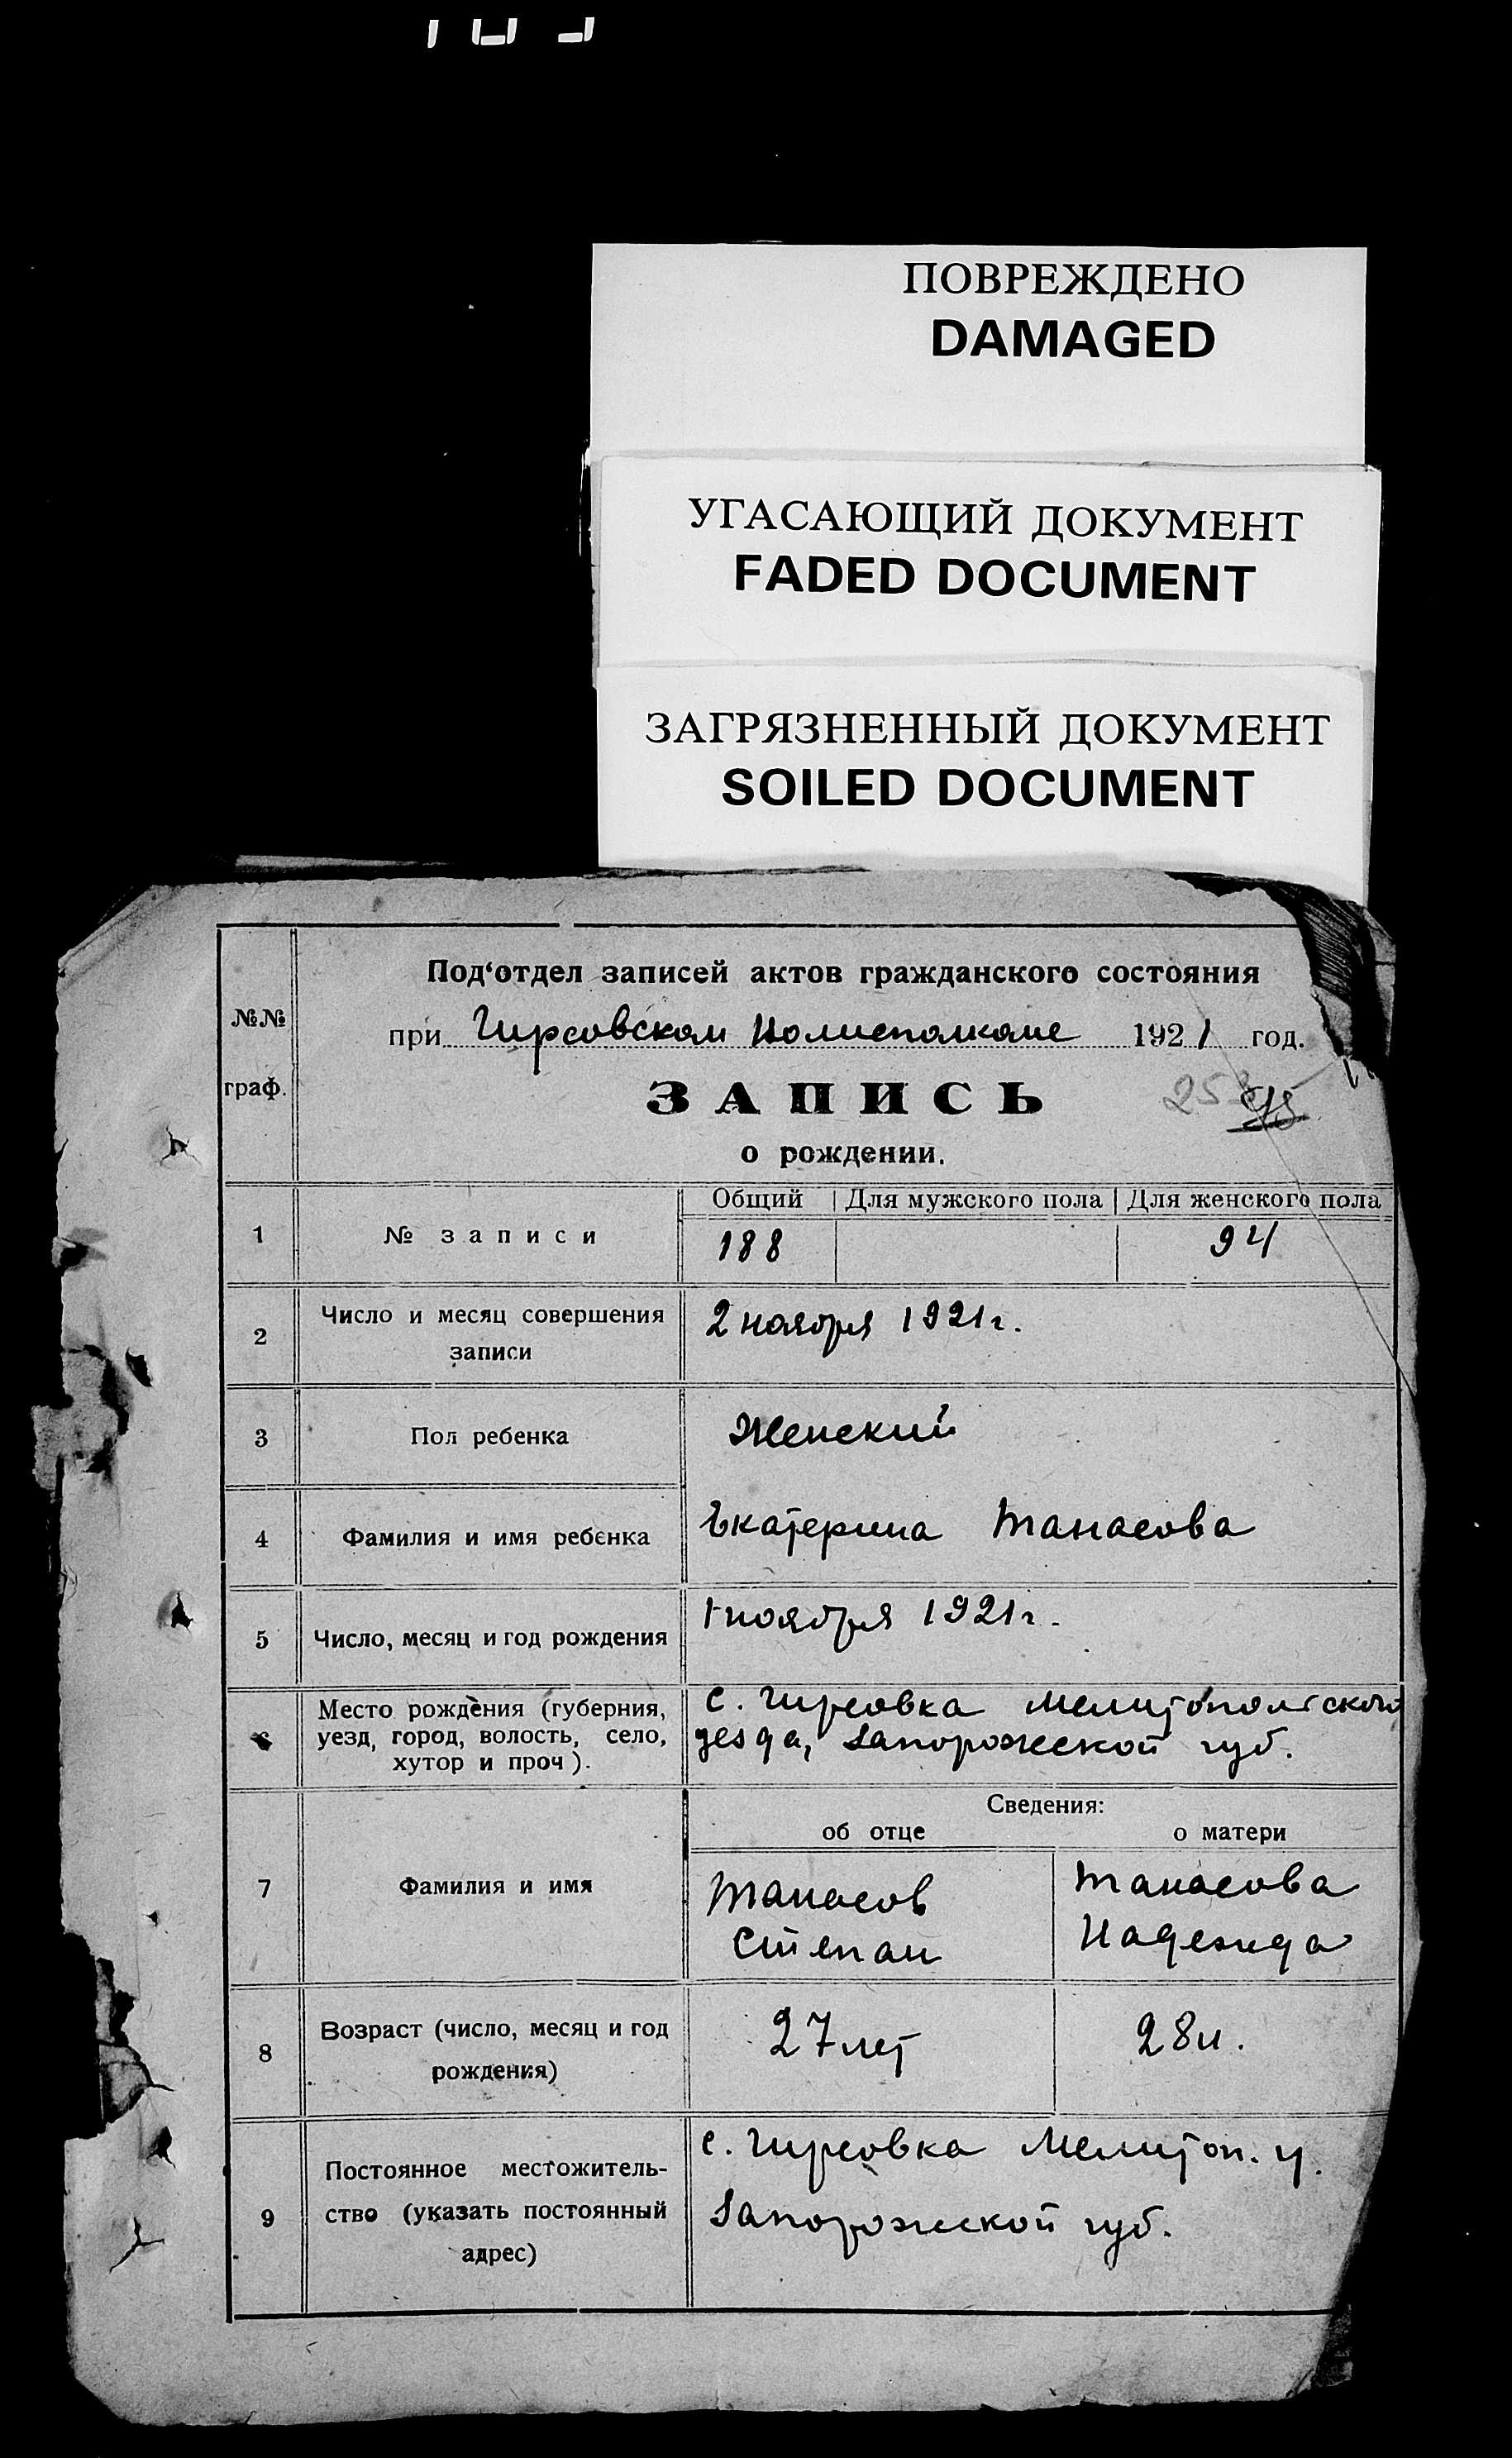 ПОВРЕЖДЕНО
DAMAGED
УГАСАЮЩИЙ ДОКУМЕНТ
FADED DOCUMENT
ЗАГРЯЗНЕННЫЙ ДОКУМЕНТ
SOILED DOCUMENT
Под‘отдел записей актов гражданского состояния
№№ граф.
при Гирсовском Волисполкоме 1921 год.
ЗАПИСЬ
о рождении.
Общий Для мужского пола Для женского пола
1 № записи 188 94
2 Число и месяц совершения 2 ноября 1921 г.
записи
3 Пол ребенка Женский
4 Фамилия и имя ребенка Екатерина Танасова
5 Число, месяц и год рождения 1 ноября 1921 г.
6 Место рождения (губерния, с. Гирсовка Мелитопольского
уезд, город, волость, село, уезда, Запорожской губ.
хутор и проч).
Сведения:
об отце о матери
7 Фамилия и имя Танасов Танасова
Степан Надежда
8 Возраст (число, месяц и год 27 лет 28 л.
рождения)
9 Постоянное местожитель- с. Гирсовка Мелитоп. у.
ство (указать постоянный Запорожской губ.
адрес)